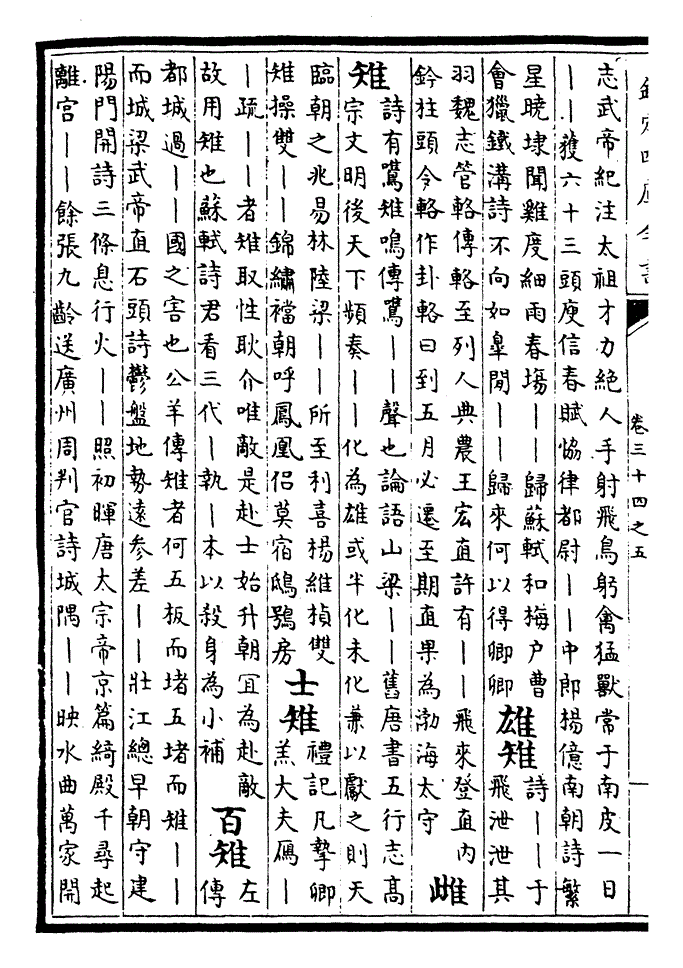 欽定四庫全書 卷三十四之五 一
志武帝紀注太祖才力絶人手射飛鳥躬禽猛獸常于南皮一日
——獲六十三頭庾信春賦恊律都尉——中郎楊億南朝詩繁
星曉埭聞雞度細雨春塲——歸蘇軾和梅户曹
會獵鐵溝詩不向如臯閒——歸來何以得卿卿
雄雉
詩——于
飛泄泄其
羽魏志管輅傳輅至列人典農王宏直許有——飛來登直内
鈐柱頭令輅作卦輅曰到五月必遷至期直果為渤海太守
雌
雉
詩有鷕雉鳴傳鷕——聲也論語山梁——舊唐書五行志髙
宗文明後天下頻奏——化為雄或半化未化兼以獻之則天
臨朝之兆易林陸梁——所至利喜楊維楨雙
雉操雙——錦繡襠朝呼鳳凰侣莫宿鴟鴞房
士雉
禮記凡摯卿
羔大夫鴈—
—疏——者雉取性耿介唯敵是赴士始升朝冝為赴敵
故用雉也蘇軾詩君看三代—執—本以殺身為小補
百雉
左
傳
都城過——國之害也公羊傳雉者何五板而堵五堵而雉——
而城梁武帝直石頭詩鬱盤地勢遠参差——壯江總早朝守建
陽門開詩三條息行火——照初暉唐太宗帝京篇綺殿千尋起
離宫——餘張九齡送廣州周判官詩城隅——映水曲萬家開